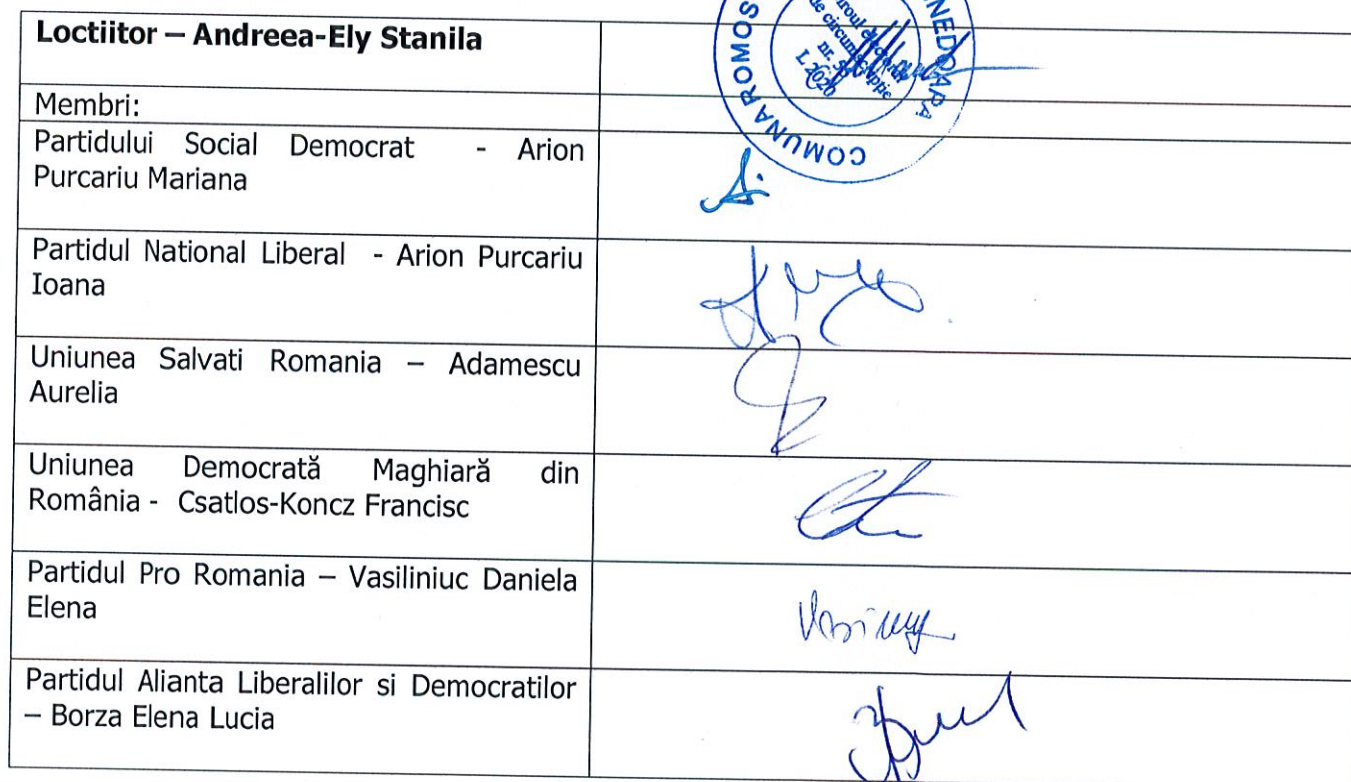 Loctiitor – Andreea-Ely Stanila
COMUNA ROMOS
NEDOARA
Membri:
Partidului Social Democrat - Arion
Purcariu Mariana
Partidul National Liberal - Arion Purcariu
Ioana
Uniunea Salvati Romania – Adamescu
Aurelia
Uniunea Democrată Maghiară din
România - Csatlos-Koncz Francisc
Partidul Pro Romania – Vasiliniuc Daniela
Elena
Partidul Alianta Liberalilor si Democratilor
– Borza Elena Lucia